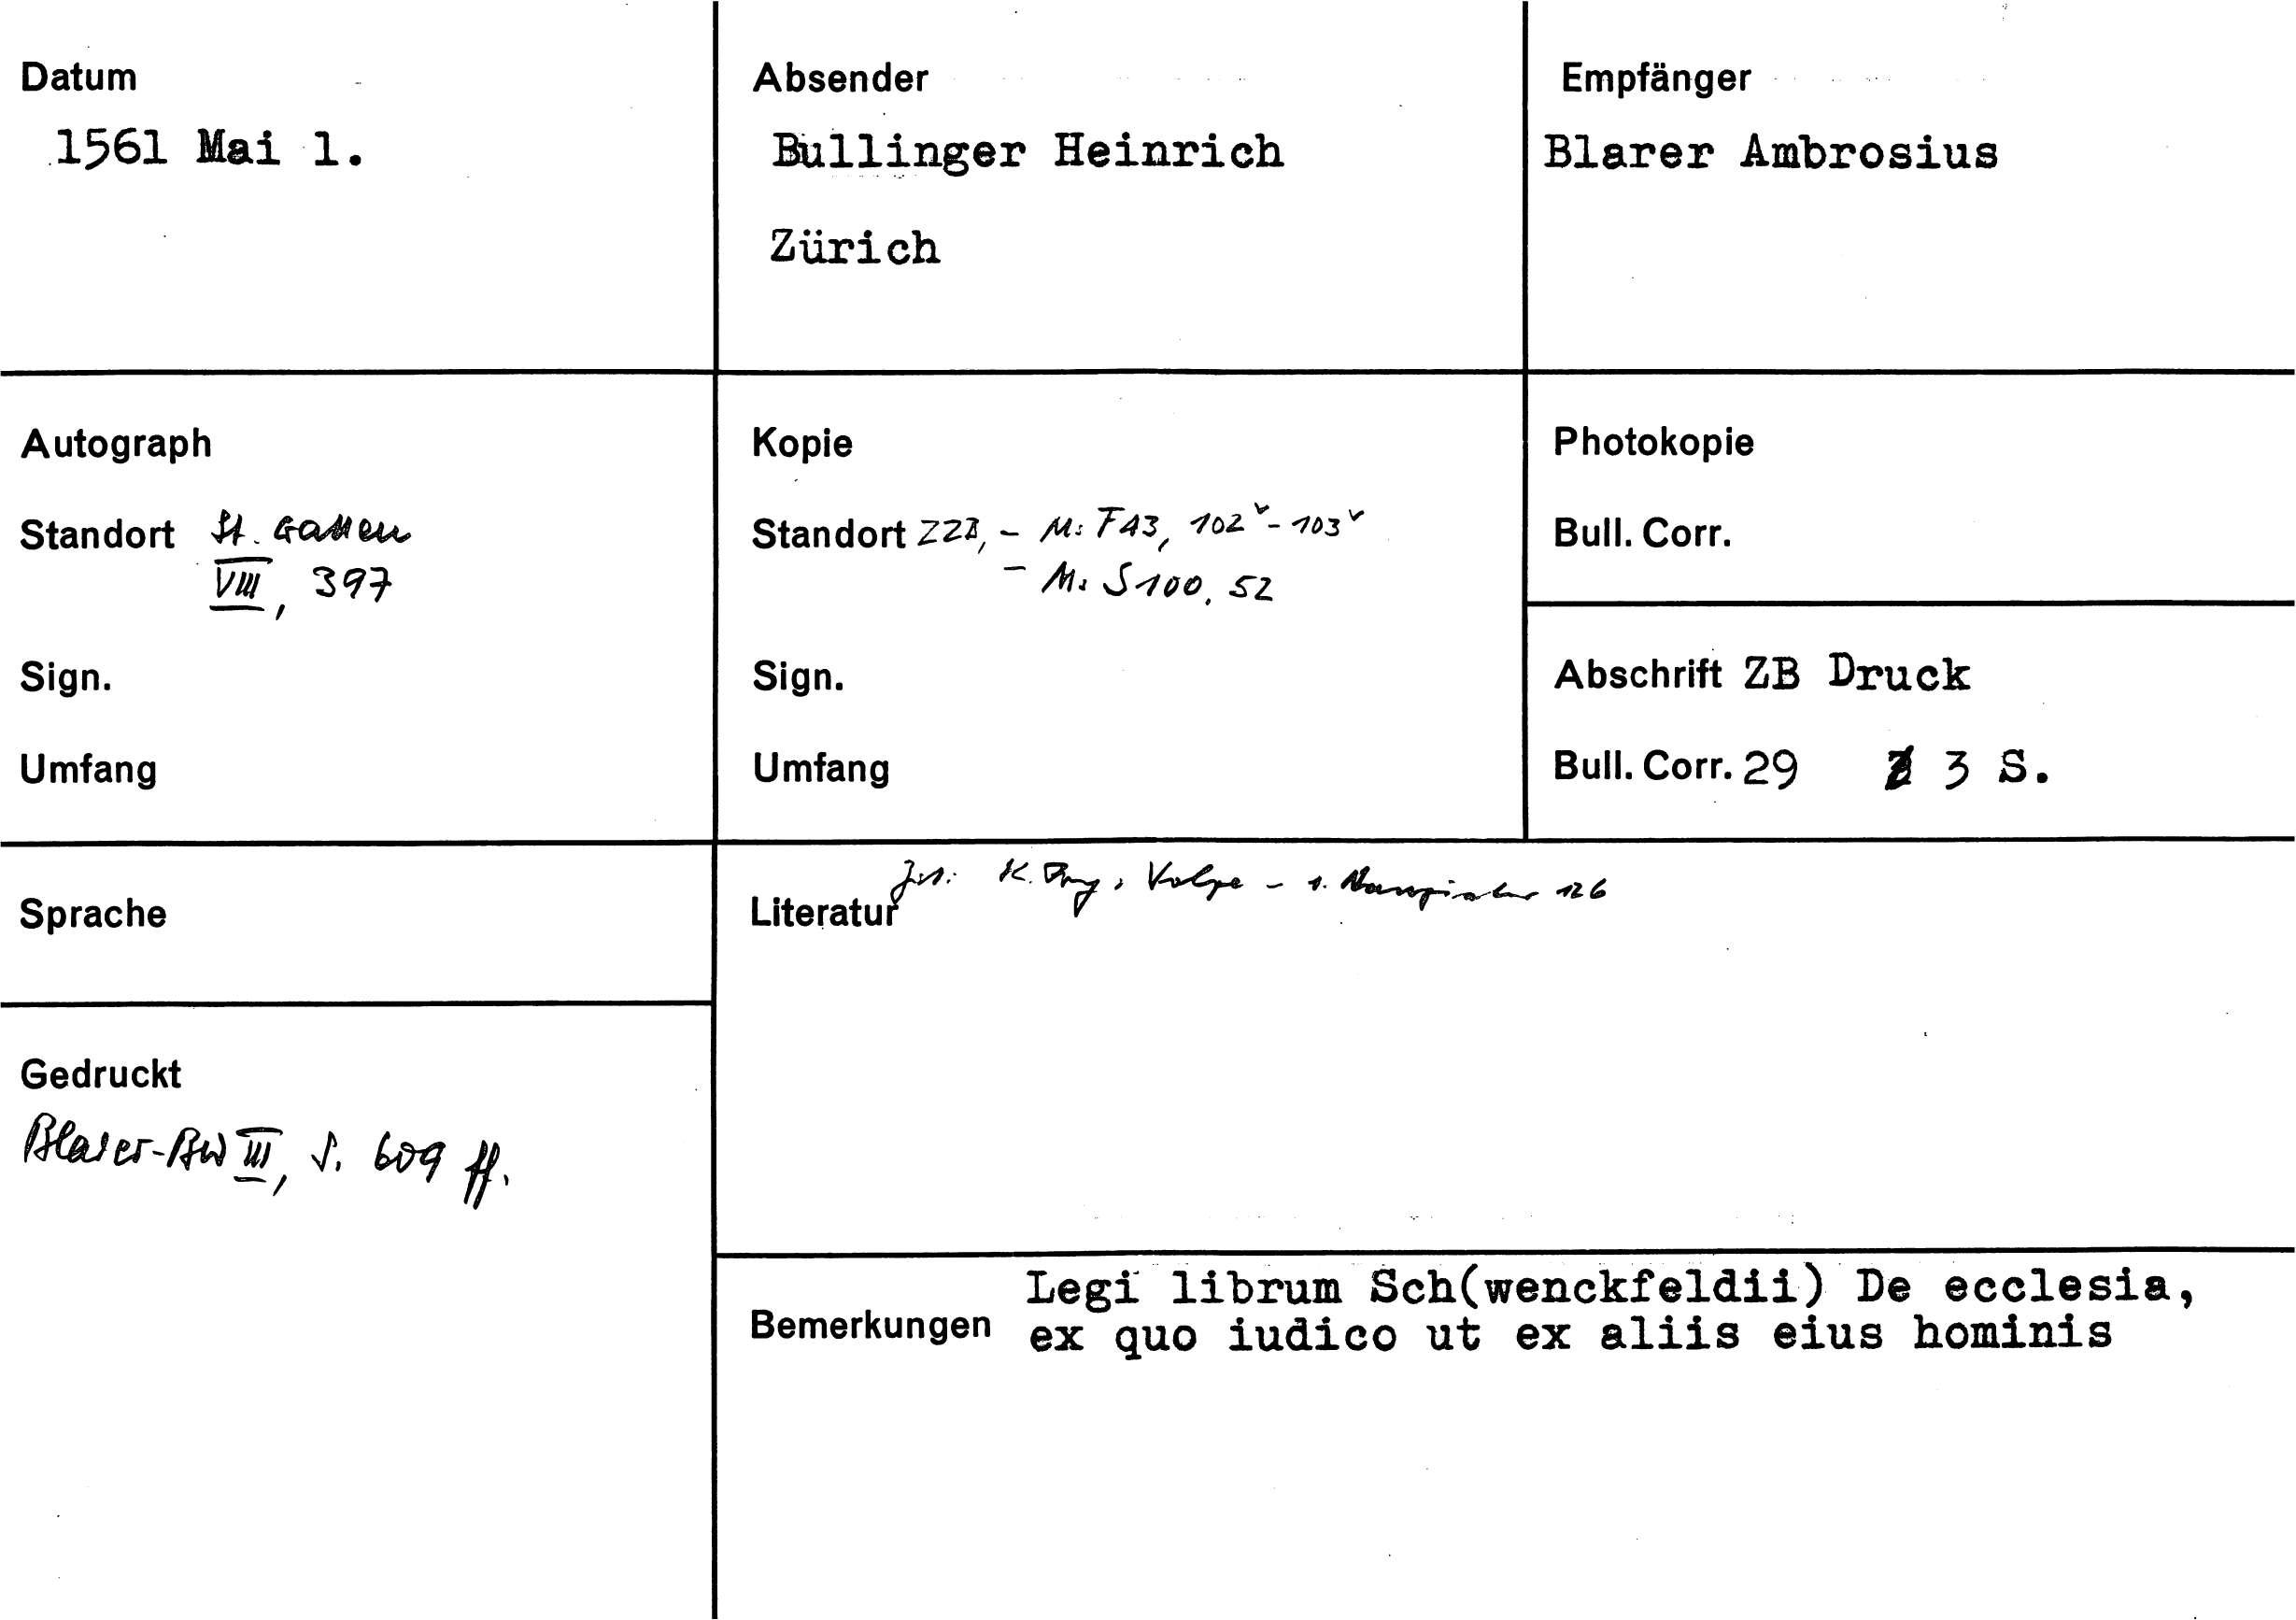 Datum
1561 Mai 1.
Absender
Bullinger Heinrich
Zürich
Empfänger
Blarer Ambrosius
Autograph
Standort St. Gallen
VIII, 397
Sign.
Umfang
Kopie
Standort ZZB, - Ms F43, 102v-103v
- Ms S100, 52
Sign.
Umfang
Photokopie
Bull. Corr.
Abschrift ZB Druck
Bull. Corr. 29 3 S.
Sprache
Literatur
126
Gedruckt
Blarer-BW III, S. 609 ff.
Bemerkungen
Legi librum Sch(wenckfeldii) De ecclesia,
ex quo iudico ut ex aliis eius hominis